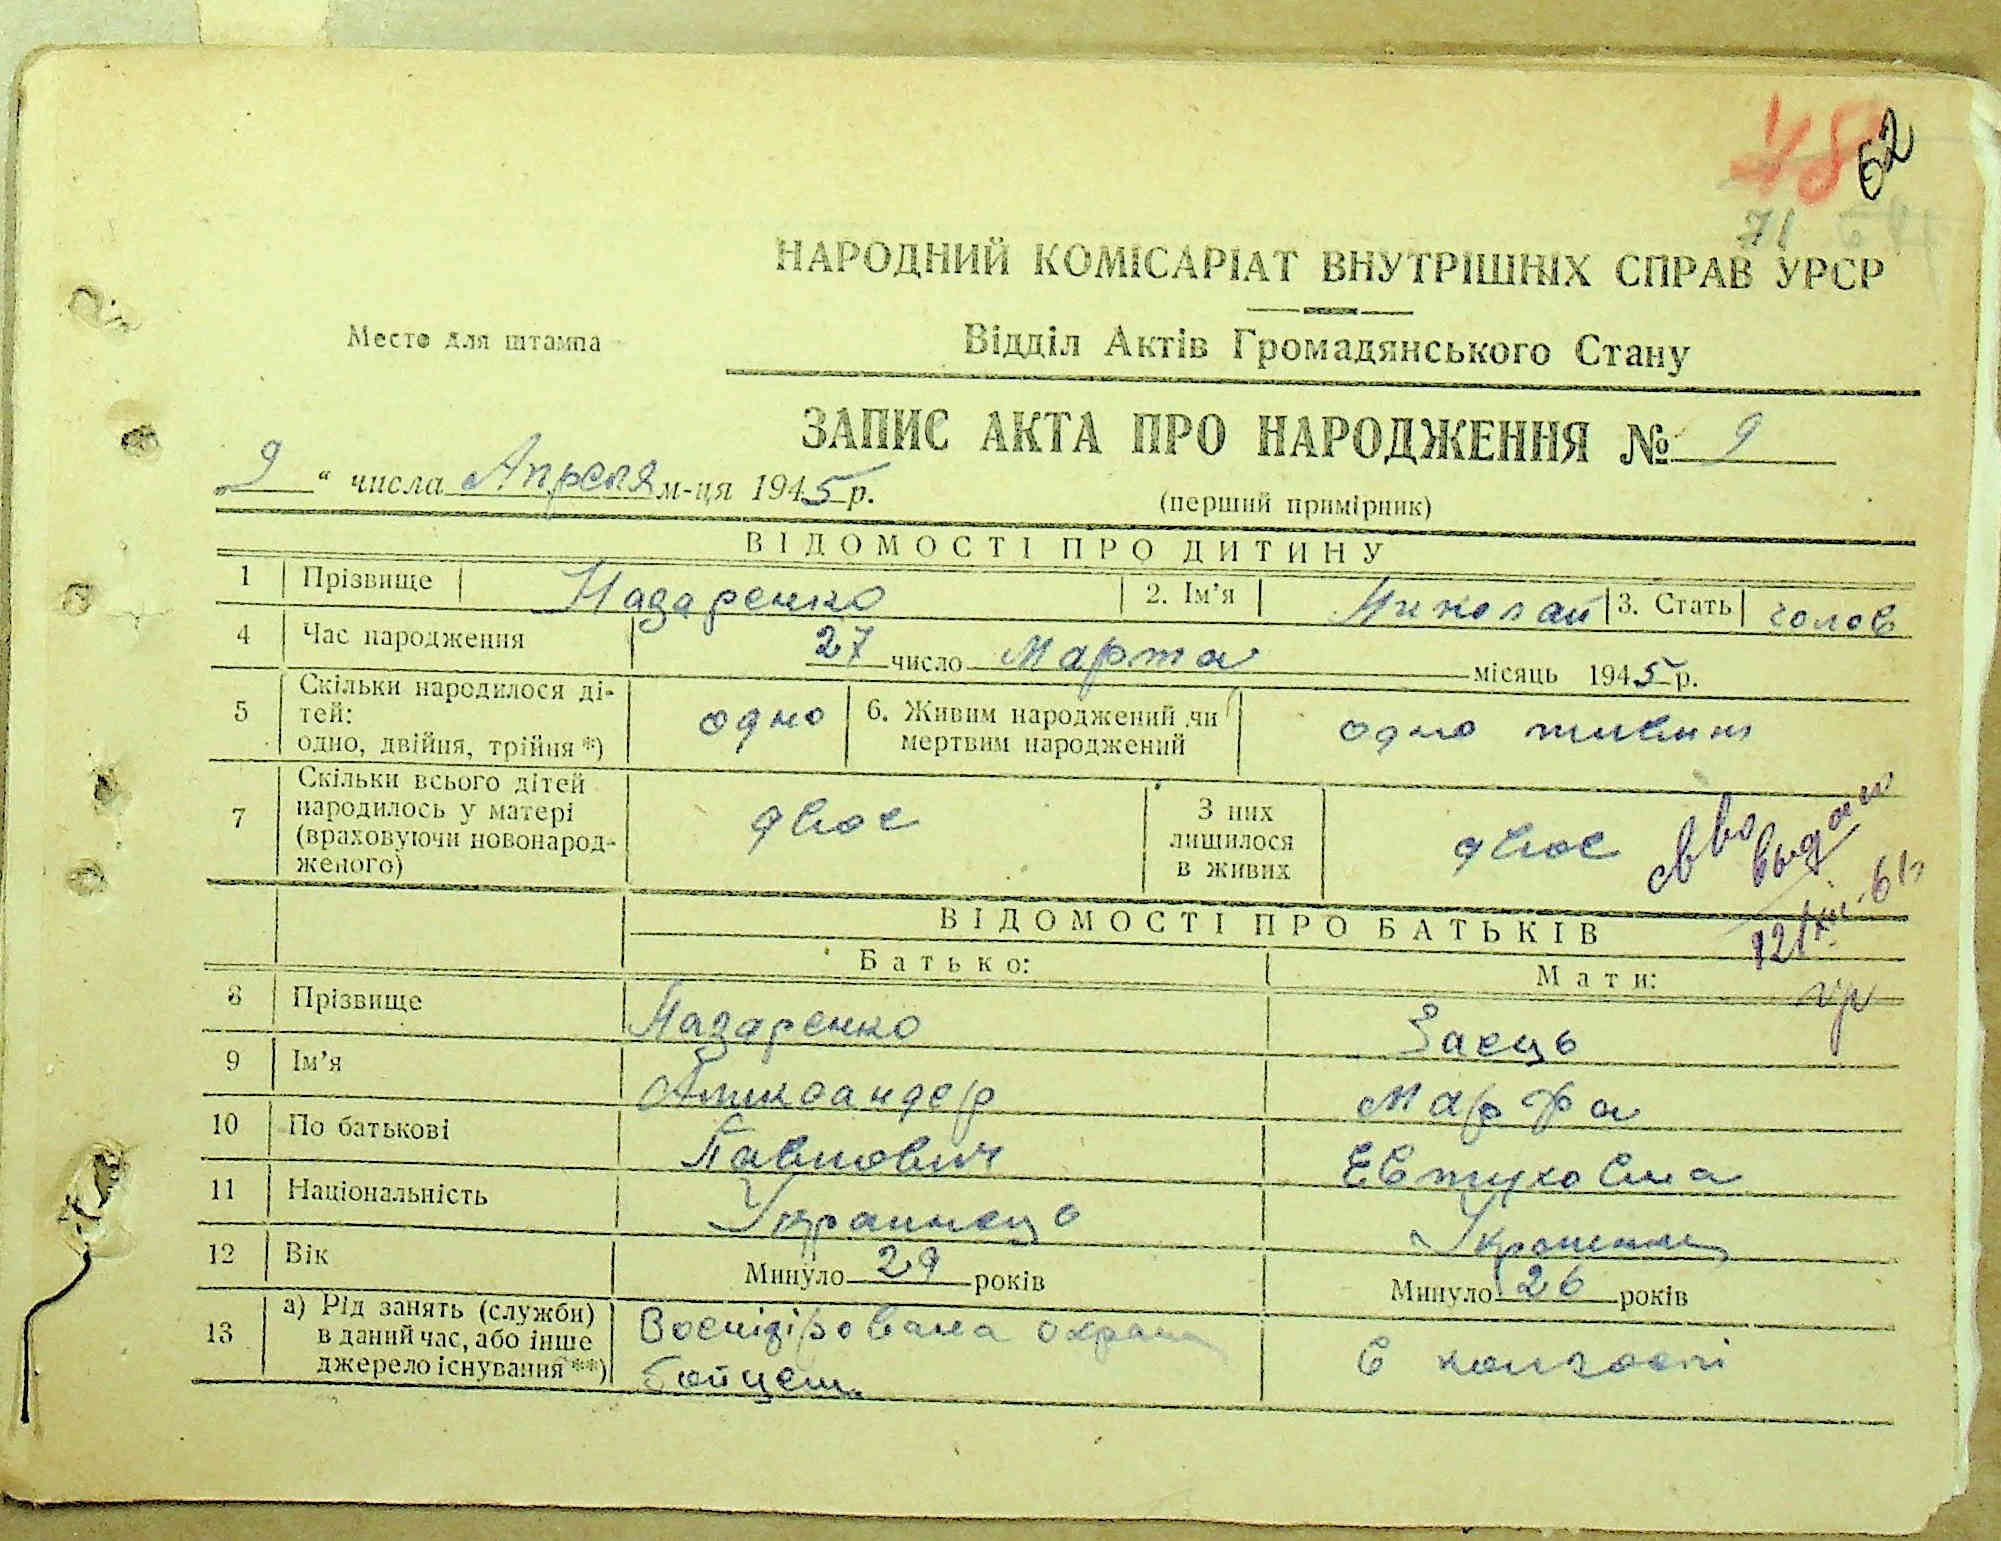 48
62
71
НАРОДНИЙ КОМІСАРІАТ ВНУТРІШНІХ СПРАВ УРСР
Место для штампа
Відділ Актів Громадянського Стану
ЗАПИС АКТА ПРО НАРОДЖЕННЯ № 9
„9“ числа Апреля м-ця 1945 р.
(перший примірник)
ВІДОМОСТІ ПРО ДИТИНУ
1 Прізвище Назаренко 2. Ім'я Николай 3. Стать чолов
4 Час народження 27 число Марта місяць 1945 р.
5 Скільки народилося ді-
тей:
одно, двійня, трійня *)
одно
6. Живим народжений чи
мертвим народжений
одно живим
7 Скільки всього дітей
народилось у матері
(враховуючи новонарод-
женого)
двоє
З них
лишилося
в живих
двоє
св во
выдан
12/XII-61
ВІДОМОСТІ ПРО БАТЬКІВ
Батько: Мати:
8 Прізвище Назаренко Заець
9 Ім'я Александер Марфа
10 По батькові Павлович Евтуховна
11 Національність Украинець Украинка
12 Вік Минуло 29 років Минуло 26 років
13 а) Рід занять (служби)
в даний час, або інше
джерело існування **)
охрана
бойцем.
в колгоспі